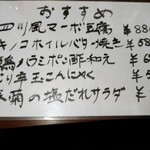 おすすめ
四川風マーボ豆腐 ¥88
キノコホイルバター焼き ¥5
鶏ムラミポン酢和え ¥6
ぴり辛玉こんにゃく ¥5
春菊の塩だれサラダ ¥